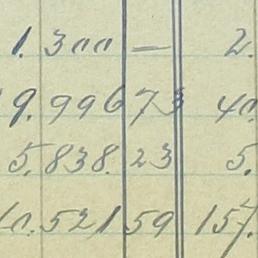 1.300 — 2.
9.996 73 40.
5.838. 23 5.
10.521 59 157.